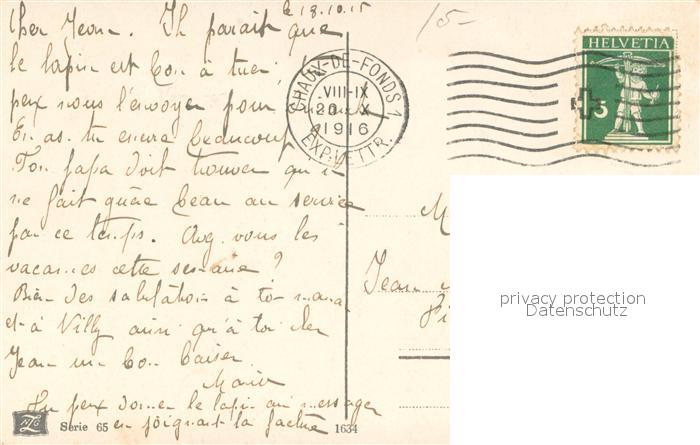 le 18.10.15
15-
Cher Jean. Il parait que
le lapin est bon à tuer, tu
peux nous l'envoyer pour
En as-tu encore beaucoup
Ton papa doit trouver qu'il
ne fait guère beau au service
par ce temps. Avez vous les
vacances cette semaine?
Bien des salutations à ta maman
et à Willy ainsi qu'à toi cher
Jean un bon baiser.
Marie
Tu peux donner le lapin au messager
en joignant la facture
CHAUX-DE-FONDS 1
VIII-IX
20 X
1916
EXP. LETTR.
HELVETIA
5
M
Jean
privacy protection
Datenschutz
Serie 65
1634